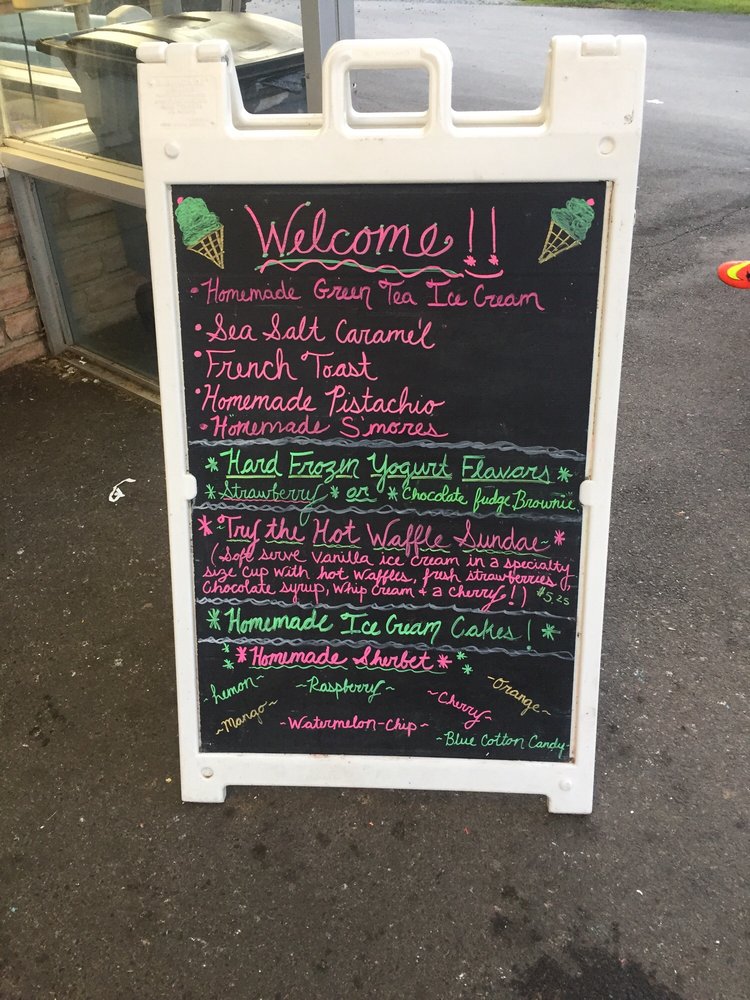 Welcome!!
• Homemade Green Tea Ice Cream
• Sea Salt Caramel
• French Toast
• Homemade Pistachio
• Homemade S'mores
* Hard Frozen Yogurt Flavors *
* Strawberry * or * Chocolate fudge Brownie
* Try the Hot Waffle Sundae *
(Soft serve vanilla ice cream in a specialty
size cup with hot waffles, fresh strawberries,
chocolate syrup, whip cream + a cherry!) $5.25
* Homemade Ice Cream Cakes! *
* Homemade Sherbet *
~Lemon~ ~Raspberry~ ~Cherry~ ~Orange~
~Mango~ ~Watermelon-Chip~
~Blue Cotton Candy~